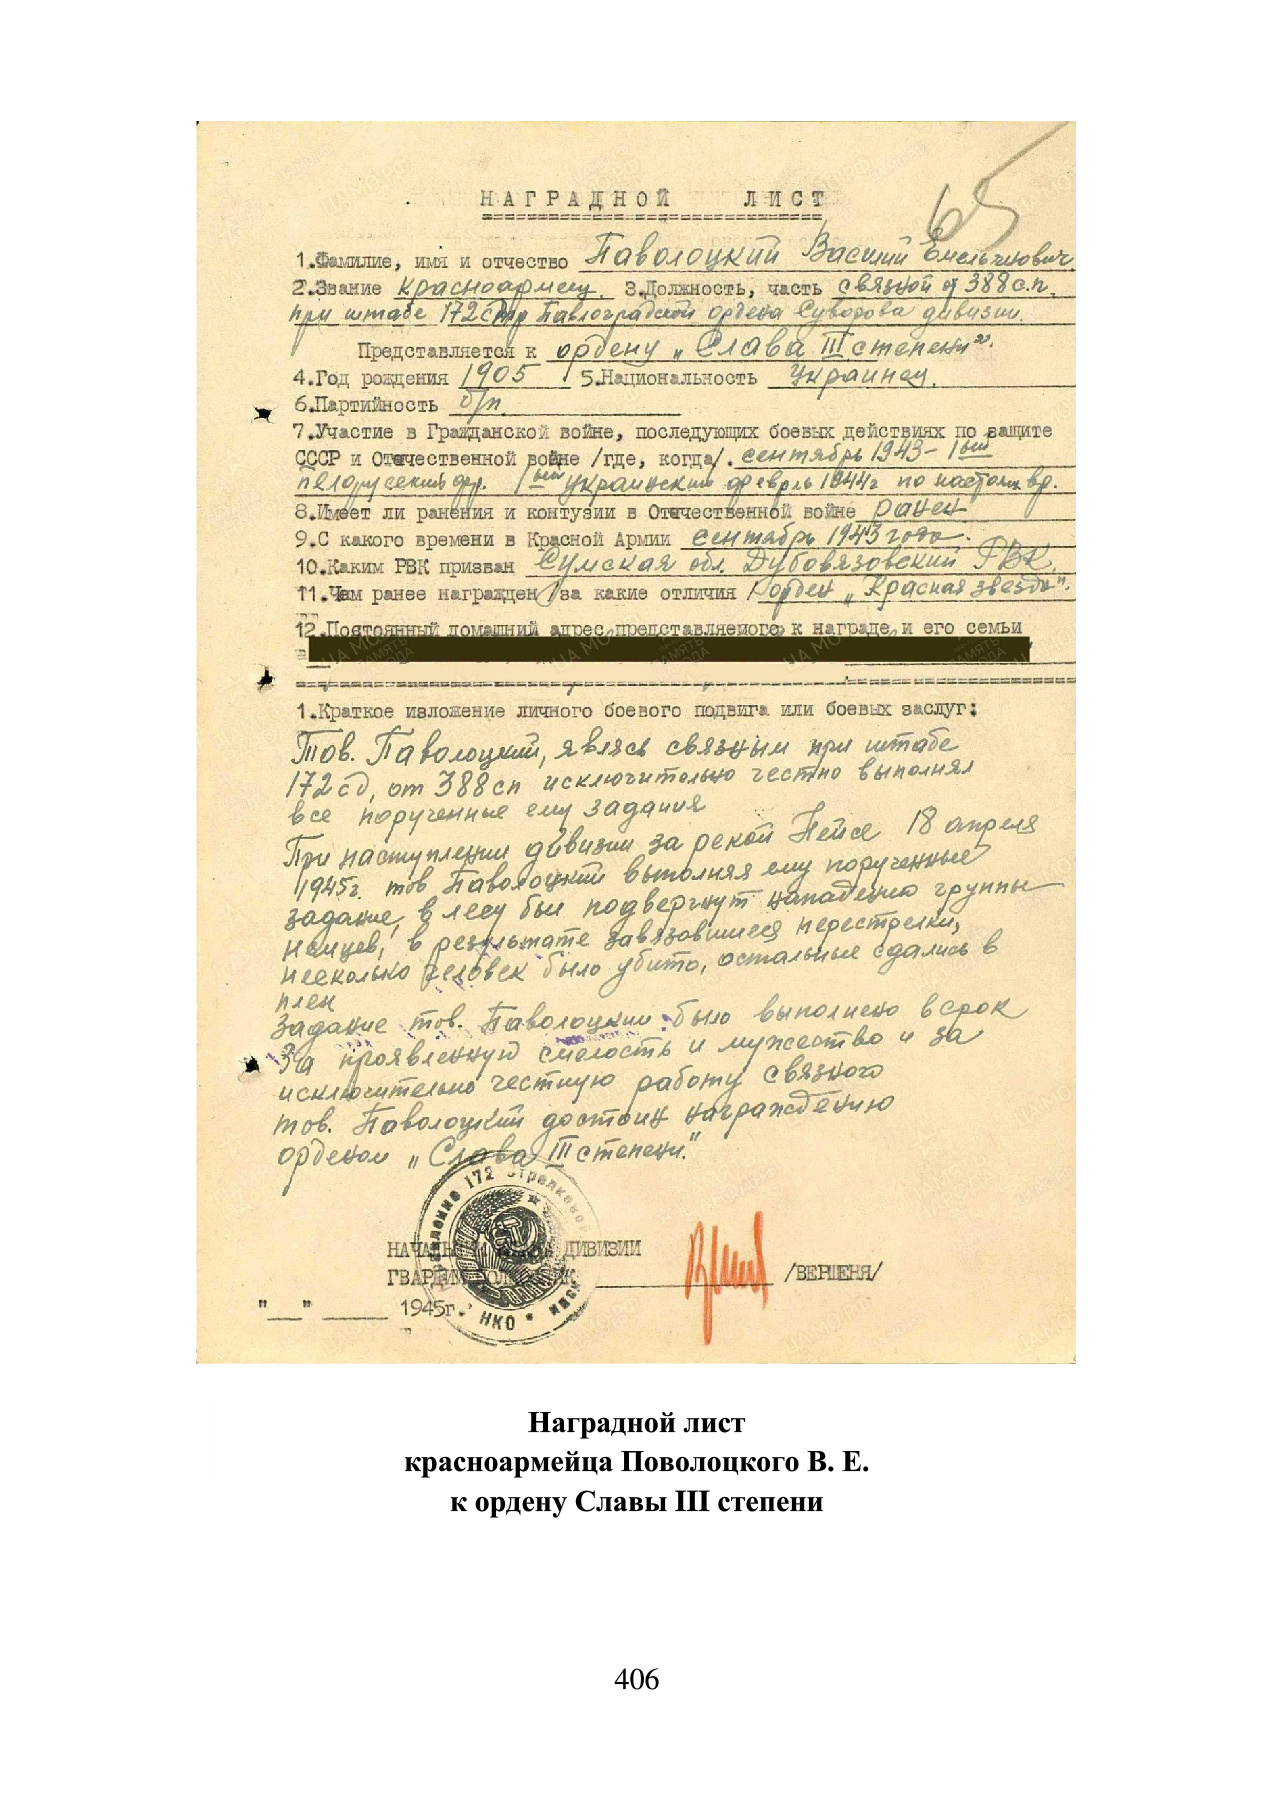 65
НАГРАДНОЙ ЛИСТ
1.Фамилие, имя и отчество Паволоцкий Василий Емельянович
2.Звание красноармеец. 3.Должность, часть связной от 388 с.п.
при штабе 172 стр Павлоградской ордена Суворова дивизии.
Представляется к ордену „Слава III степени".
4.Год рождения 1905 5.Национальность Украинец.
6.Партийность б/п
7.Участие в Гражданской войне, последующих боевых действиях по защите
СССР и Отечественной войне /где, когда/. сентябрь 1943 – 1ый
Украинский 1944г по
8.Имеет ли ранения и контузии в Отечественной войне ранен
9.С какого времени в Красной Армии сентябрь 1943 года.
10.Каким РВК призван Сумская обл. Дубовязовский РВК.
11.Чем ранее награжден /за какие отличия/ орден „Красная звезда".
12.Постоянный домашний адрес представляемого к награде и его семьи
1.Краткое изложение личного боевого подвига или боевых заслуг:
Тов. Паволоцкий, являсь связным при штабе
172 сд, от 388 сп исключительно честно выполнял
все порученные ему задания
При наступлении дивизии за рекой Нейсе 18 апреля
1945г. тов Паволоцкий выполняя ему порученные
задание, в лесу был подвергнут нападению группы
немцев, в результате завязовшиеся перестрелки,
несколько человек было убито, остальные сдались в
плен
Задание тов. Паволоцким было выполнено в срок
За проявленную смелость и мужество и за
исключительно честную работу связного
тов. Паволоцкий достоин награждению
орденом „Слава III степени."
НАЧАЛЬНИК ДИВИЗИИ
ГВАРДИИ /ВЕРШЕНЯ/
"__" _____ 1945г.
172 Стрелковой
НКО
Наградной лист
красноармейца Поволоцкого В. Е.
к ордену Славы III степени
406